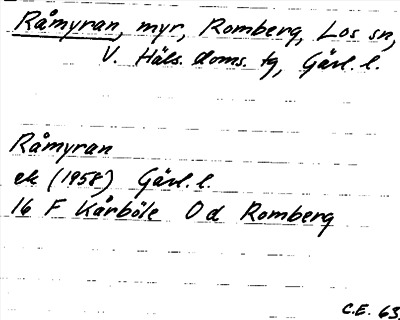 Råmyran, myr, Romberg, Los sn,
V. Häls. doms. tg, Gävl. l.
Råmyran
ek (1958) Gävl. l.
16 F Kårböle 0 d Romberg
C.E. 63.